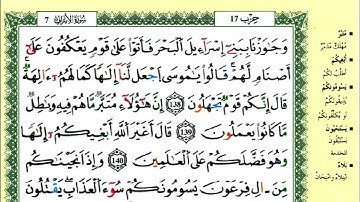 حزب 17
سورة الأعراف 7
وَجَٰوَزْنَا بِبَنِےٓ إِسْرَآءِيلَ اَلْبَحْرَ فَأَتَوْاْ عَلَىٰ قَوْمٍ يَعْكُفُونَ عَلَىٰٓ
أَصْنَامٍ لَّهُمْ قَالُواْ يَٰمُوسَى اَجْعَل لَّنَآ إِلَٰهاً كَمَا لَهُمُۥٓ ءَالِهَةٌ
قَالَ إِنَّكُمْ قَوْمٌ تَجْهَلُونَ 138 إِنَّ هَٰٓؤُلَآءِ مُتَبَّرٌ مَّا هُمْ فِيهِ وَبَٰطِلٌ
مَّا كَانُواْ يَعْمَلُونَ 139 قَالَ أَغَيْرَ اَللَّهِ أَبْغِيكُمُۥٓ إِلَٰهاً
وَهُوَ فَضَّلَكُمْ عَلَى اَلْعَٰلَمِينَ 140 وَإِذَ اَنجَيْنَٰكُم
مِّنَ اٰلِ فِرْعَوْنَ يَسُومُونَكُمْ سُوٓءَ اَلْعَذَابِ يَقْتُلُونَ
مُتَبَّرٌ
مهلك مدمر
أبغيكم
أطلب لكم
يسومونكم
يذيقونكم
أو يكلفونكم
يستحيون
يستبقون
للخدمة
بلاء
ابتلاء وامتحان